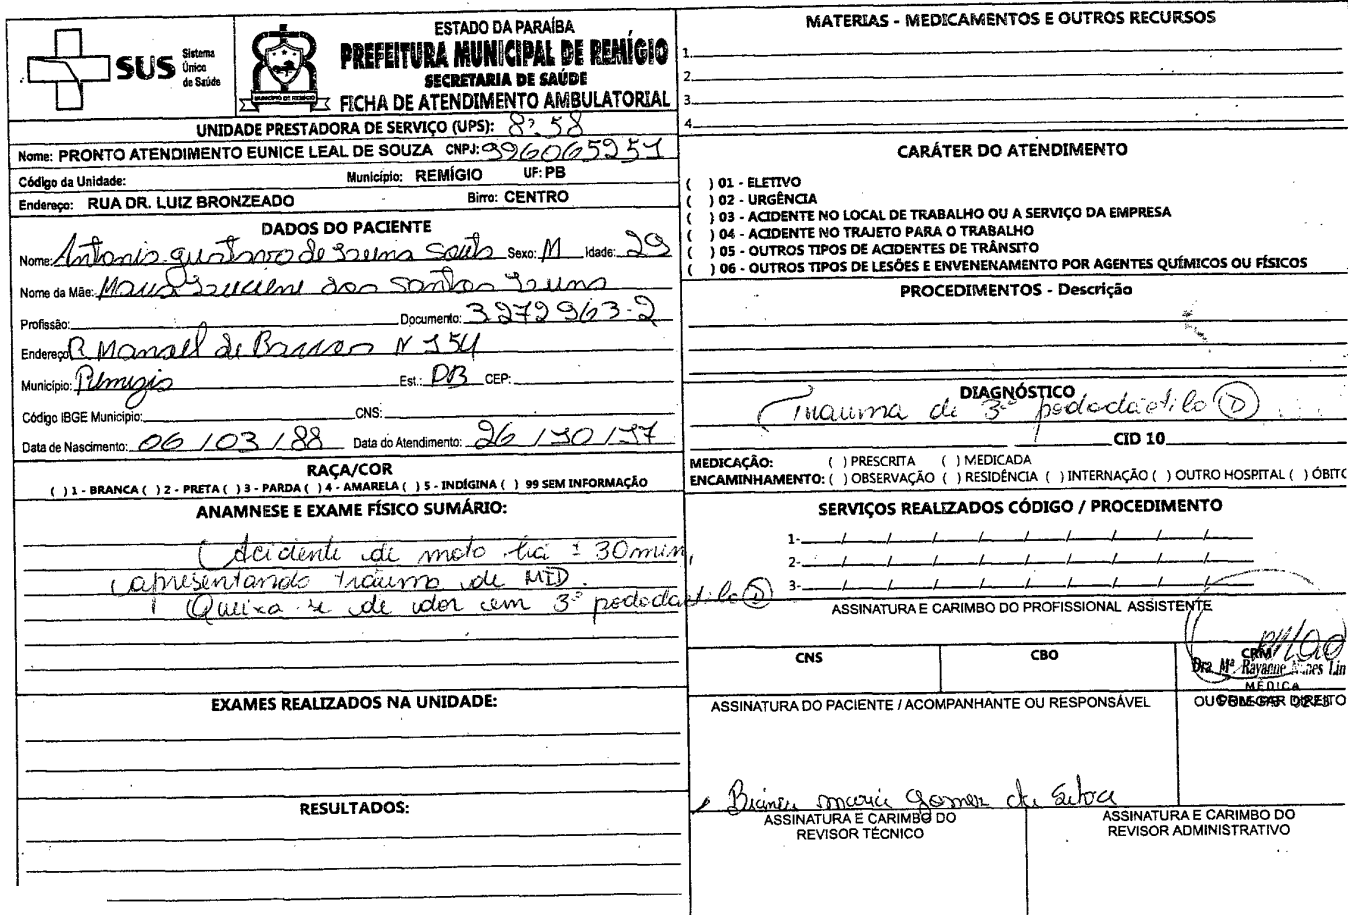 SUS Sistema Único de Saúde
MUNICÍPIO DE REMÍGIO
ESTADO DA PARAÍBA
PREFEITURA MUNICIPAL DE REMÍGIO
SECRETARIA DE SAÚDE
FICHA DE ATENDIMENTO AMBULATORIAL
UNIDADE PRESTADORA DE SERVIÇO (UPS): 8:58
Nome: PRONTO ATENDIMENTO EUNICE LEAL DE SOUZA CNPJ: 996065951
Código da Unidade: Município: REMÍGIO UF: PB
Endereço: RUA DR. LUIZ BRONZEADO Birro: CENTRO
DADOS DO PACIENTE
Nome: Antonio gustavo de Sexo: M Idade: 29
Nome da Mãe: dos Santos
Profissão: Documento: 3272963-2
Endereço R Manoel de Barros N 154
Município: Remigio Est.: PB CEP:
Código IBGE Município: CNS:
Data de Nascimento: 06/03/88 Data do Atendimento: 26/10/17
RAÇA/COR
( ) 1 - BRANCA ( ) 2 - PRETA ( ) 3 - PARDA ( ) 4 - AMARELA ( ) 5 - INDÍGINA ( ) 99 SEM INFORMAÇÃO
ANAMNESE E EXAME FÍSICO SUMÁRIO:
Acidente de moto há ± 30min,
apresentando trauma de MID.
Queixa-se de dor em 3º pododactilo (D)
EXAMES REALIZADOS NA UNIDADE:
RESULTADOS:
MATERIAS - MEDICAMENTOS E OUTROS RECURSOS
1.
2.
3.
4.
CARÁTER DO ATENDIMENTO
( ) 01 - ELETIVO
( ) 02 - URGÊNCIA
( ) 03 - ACIDENTE NO LOCAL DE TRABALHO OU A SERVIÇO DA EMPRESA
( ) 04 - ACIDENTE NO TRAJETO PARA O TRABALHO
( ) 05 - OUTROS TIPOS DE ACIDENTES DE TRÂNSITO
( ) 06 - OUTROS TIPOS DE LESÕES E ENVENENAMENTO POR AGENTES QUÍMICOS OU FÍSICOS
PROCEDIMENTOS - Descrição
DIAGNÓSTICO
Trauma de 3º pododáctilo (D)
CID 10
MEDICAÇÃO: ( ) PRESCRITA ( ) MEDICADA
ENCAMINHAMENTO: ( ) OBSERVAÇÃO ( ) RESIDÊNCIA ( ) INTERNAÇÃO ( ) OUTRO HOSPITAL ( ) ÓBITO
SERVIÇOS REALIZADOS CÓDIGO / PROCEDIMENTO
1- / / / / / / / / /
2- / / / / / / / / /
3- / / / / / / / / /
ASSINATURA E CARIMBO DO PROFISSIONAL ASSISTENTE
CNS CBO CRM
Dra. Mª. Rayanne Nunes Lin
MÉDICA
ASSINATURA DO PACIENTE / ACOMPANHANTE OU RESPONSÁVEL OU POLEGAR DIREITO
maria Gomes da Silva
ASSINATURA E CARIMBO DO REVISOR TÉCNICO
ASSINATURA E CARIMBO DO REVISOR ADMINISTRATIVO